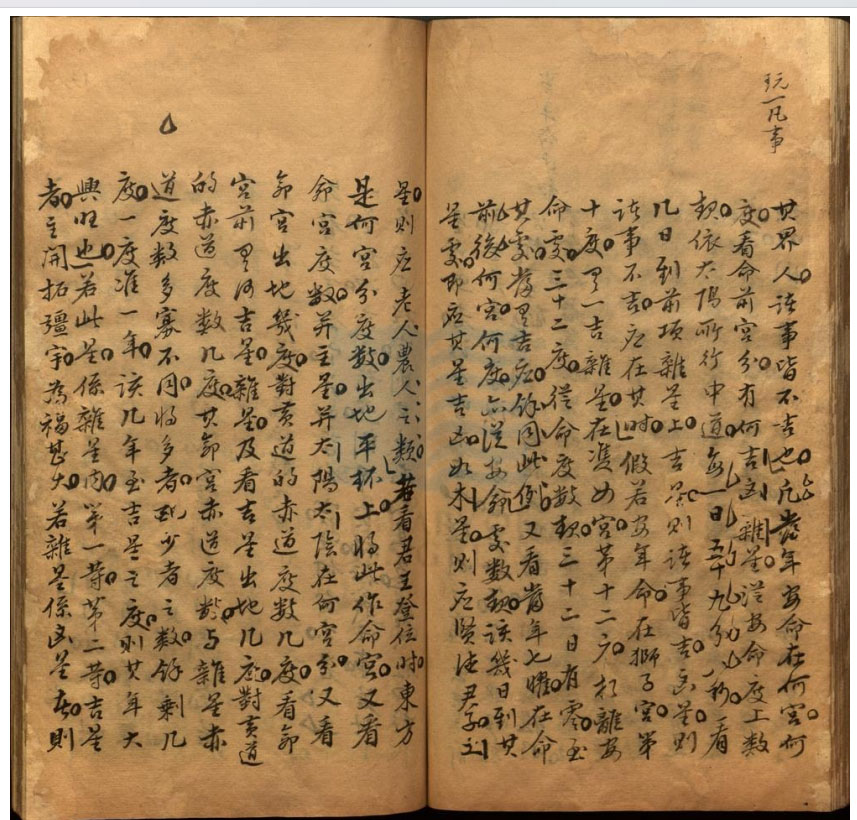 玩一凡事
其界人诸事皆不吉也凡當年安命在何宮何
度看命前宮分有何吉凶雜星從安命度上数
起依太陽所行中道每一日五十九分八秒看
几日到前項雜星上吉星则诸事皆吉凶星则
诸事不吉应在其时假若安年命在獅子宮第
十度見一吉雜星在雙女宮第十二度相離安
命處三十二度從命度数起三十二日有零至
其處發見吉应餘同此例又看當年七曜在命
前後何宮何度亦從安命處数起該幾日到其
星處即应其星吉凶如木星则应賢德君子土
星则应老人農人之類若看君王登位时東方
是何宮分度数出地平环上将此作命宮又看
命宮度数并主星并太陽太陰在何宮分又看
命宮出地幾度對黄道的赤道度数几度看命
宮前見何吉星雜星及看吉星出地几度對黄道
的赤道度数几度其命宮赤道度数与雜星赤
道度数多寡不同将多者减少者之数餘剩几
度一度准一年該几年至吉星之度则其年大
興旺也若此星係雜星内第一等第二等吉星
者主開拓疆宇為福甚大若雜星係凶星者则